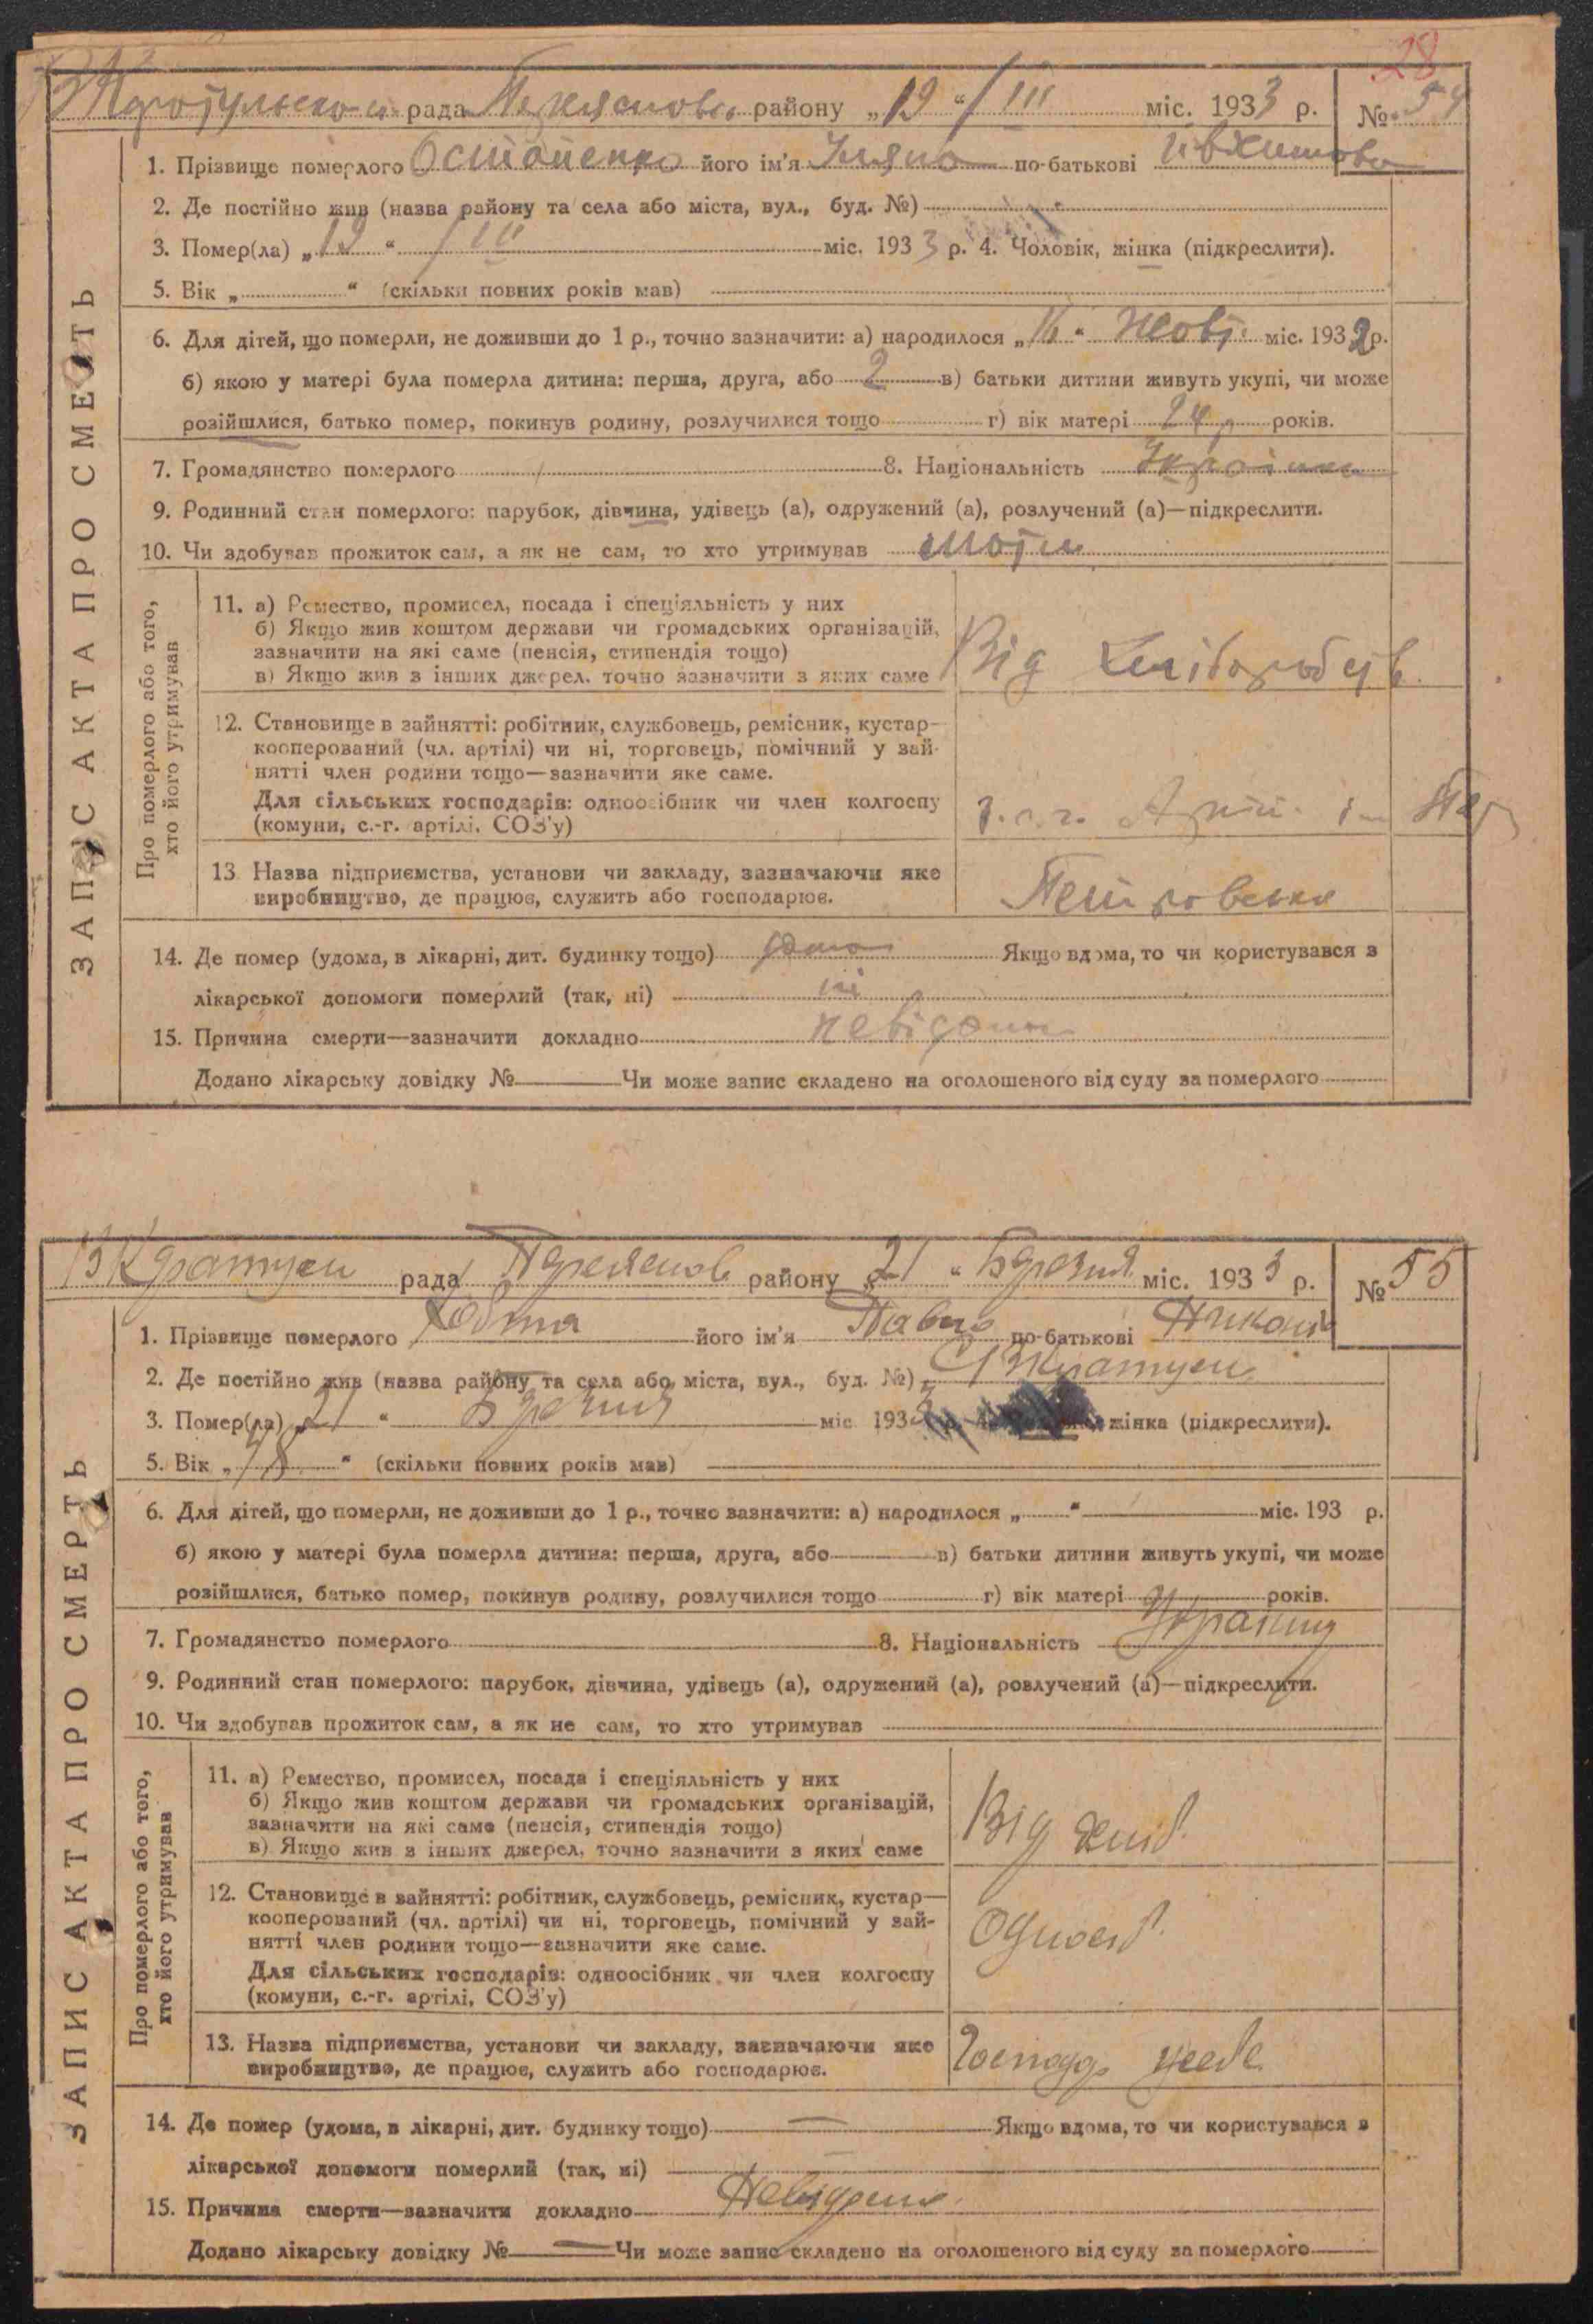 28
рада района „19“ III міс. 1933 р. № 54
1. Прізвище померлого Остапенко його ім'я по-батькові
2. Де постійно жив (назва району та села або міста, вул., буд. №)
3. Помер(ла) „19“ III міс. 1933 р. 4. Чоловік, жінка (підкреслити).
5. Вік „ “ (скільки повних років мав)
6. Для дітей, що померли, не доживши до 1 р., точно зазначити: а) народилося „16“ Жовт. міс. 1932 р.
б) якою у матері була померла дитина: перша, друга, або 2 в) батьки дитини живуть укупі, чи може
розійшлися, батько помер, покинув родину, розлучилися тощо г) вік матері 24 років.
7. Громадянство померлого 8. Національність
9. Родинний стан померлого: парубок, дівчина, удівець (а), одружений (а), розлучений (а)—підкреслити.
10. Чи здобував прожиток сам, а як не сам, то хто утримував мати
ЗАПИС АКТА ПРО СМЕРТЬ
Про померлого або того,
хто його утримував
11. а) Ремество, промисел, посада і спеціяльність у них
б) Якщо жив коштом держави чи громадських організацій,
зазначити на які саме (пенсія, стипендія тощо)
в) Якщо жив з інших джерел, точно зазначити з яких саме
Від
12. Становище в зайнятті: робітник, службовець, ремісник, кустар—
кооперований (чл. артілі) чи ні, торговець, помічний у зай-
нятті член родини тощо—зазначити яке саме.
Для сільських господарів: одноосібник чи член колгоспу
(комуни, с.-г. артілі, СОЗ'у)
13. Назва підприємства, установи чи закладу, зазначаючи яке
виробництво, де працює, служить або господарює.
14. Де помер (удома, в лікарні, дит. будинку тощо) удома Якщо вдома, то чи користувався з
лікарської допомоги померлий (так, ні) ні
15. Причина смерти—зазначити докладно невідома
Додано лікарську довідку № Чи може запис складено на оголошеного від суду за померлого
рада району „21“ Березня міс. 1933 р. № 55
1. Прізвище померлого його ім'я Павло по-батькові
2. Де постійно жив (назва району та села або міста, вул., буд. №)
3. Помер(ла) „21“ Березня міс. 1933 жінка (підкреслити).
5. Вік „78“ (скільки повних років мав)
6. Для дітей, що померли, не доживши до 1 р., точно зазначити: а) народилося „ “ міс. 193 р.
б) якою у матері була померла дитина: перша, друга, або в) батьки дитини живуть укупі, чи може
розійшлися, батько помер, покинув родину, розлучилися тощо г) вік матері років.
7. Громадянство померлого 8. Національність
9. Родинний стан померлого: парубок, дівчина, удівець (а), одружений (а), розлучений (а)—підкреслити.
10. Чи здобував прожиток сам, а як не сам, то хто утримував
ЗАПИС АКТА ПРО СМЕРТЬ
Про померлого або того,
хто його утримував
11. а) Ремество, промисел, посада і спеціяльність у них
б) Якщо жив коштом держави чи громадських організацій,
зазначити на які саме (пенсія, стипендія тощо)
в) Якщо жив з інших джерел, точно зазначити з яких саме
Від хліб.
12. Становище в зайнятті: робітник, службовець, ремісник, кустар—
кооперований (чл. артілі) чи ні, торговець, помічний у зай-
нятті член родини тощо—зазначити яке саме.
Для сільських господарів: одноосібник чи член колгоспу
(комуни, с.-г. артілі, СОЗ'у)
13. Назва підприємства, установи чи закладу, зазначаючи яке
виробництво, де працює, служить або господарює.
14. Де помер (удома, в лікарні, дит. будинку тощо) — Якщо вдома, то чи користувався з
лікарської допомоги померлий (так, ні)
15. Причина смерти—зазначити докладно Невідома
Додано лікарську довідку № — Чи може запис складено на оголошеного від суду за померлого